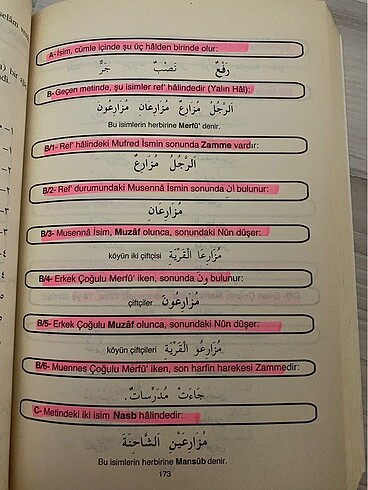 selâm
A- İsim, cümle içinde şu üç hâlden birinde olur:
رَفْعٌ نَصْبٌ جَرٌّ
B- Geçen metinde, şu isimler ref' hâlindedir (Yalın Hâl):
اَلرَّجُلُ مُزَارِعٌ مُزَارِعَانِ مُزَارِعُونَ
Bu isimlerin herbirine Merfû' denir.
B/1- Ref' hâlindeki Mufred İsmin sonunda Zamme vardır:
اَلرَّجُلُ مُزَارِعٌ
B/2- Ref' durumundaki Musennâ İsmin sonunda انِ bulunur:
مُزَارِعَانِ
B/3- Musennâ İsim, Muzâf olunca, sonundaki Nûn düşer:
köyün iki çiftçisi مُزَارِعَا الْقَرْيَةِ
B/4- Erkek Çoğulu Merfû' iken, sonunda ونَ bulunur:
çiftçiler مُزَارِعُونَ
B/5- Erkek Çoğulu Muzâf olunca, sonundaki Nûn düşer:
köyün çiftçileri مُزَارِعُو الْقَرْيَةِ
B/6- Muennes Çoğulu Merfû' iken, son harfin harekesi Zammedir:
جَاءَتْ مُدَرِّسَاتٌ.
C- Metindeki iki isim Nasb hâlindedir:
مُزَارِعَيْنِ الشَّاحِنَةَ
Bu isimlerin herbirine Mansûb denir.
173